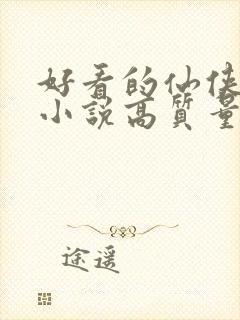 好看的仙侠
小说高质量
途遥